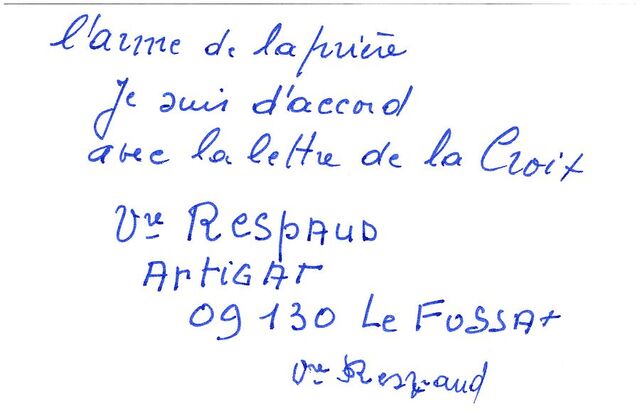 l'arme de la prière
Je suis d'accord
avec la lettre de la Croix
Vve RESpAUD
ArtiGAT
09 130 Le FoSSAt
Vve Respaud